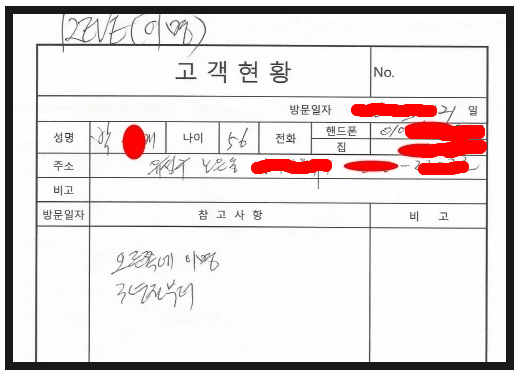 REVE(이명)
고객현황
No.
방문일자 21 일
성명 나이 56 전화 핸드폰 010
집
주소
비고
방문일자 참고사항 비고
오른쪽에 이명
3년전부터